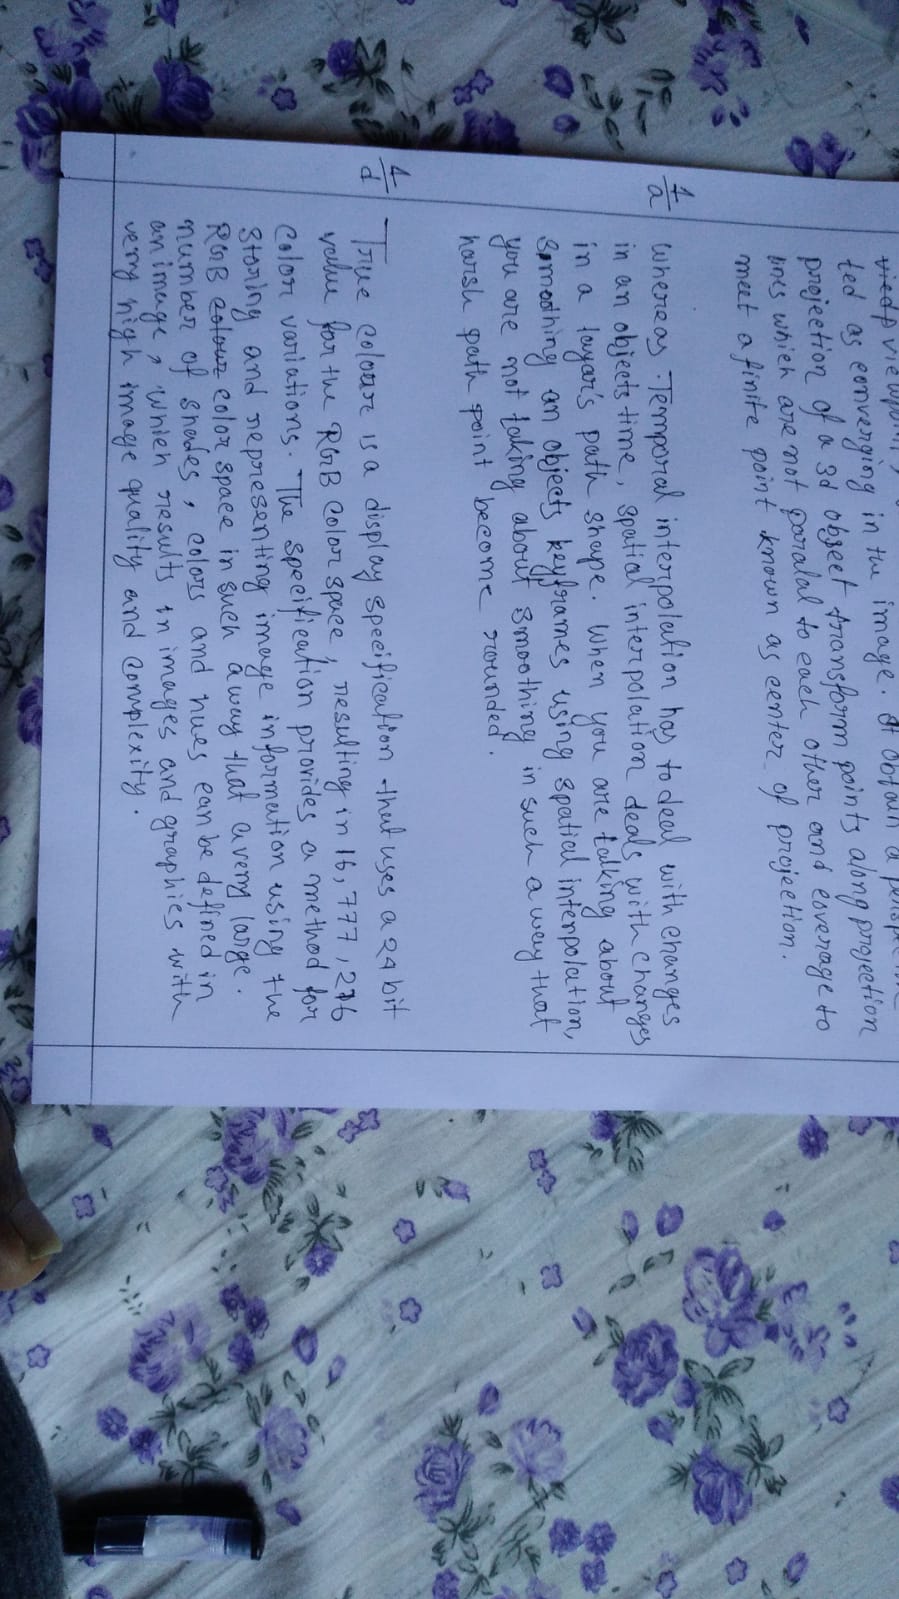 viewpoint,
ted as converging in the image. It obtain a
projection of a 3d object transform points along projection
lines which are not paralal to each other and coverage to
meet a finite point known as center of projection.
1/a
Whereas Temporal interpolation has to deal with changes
in an objects time, spatial interpolation deals with changes
in a layar's path shape. When you are talking about
smoothing an objects keyframes using spatial interpolation,
you are not taking about smoothing in such a way that
harsh path point become rounded.
1/d
True colour is a display specification that uses a 24 bit
value for the RGB color space, resulting in 16,777,216
color variations. The specification provides a method for
storing and representing image information using the
RGB colour color space in such a way that a very large.
number of shades, colors and hues can be defined in
an image, which results in images and graphics with
very high image quality and complexity.